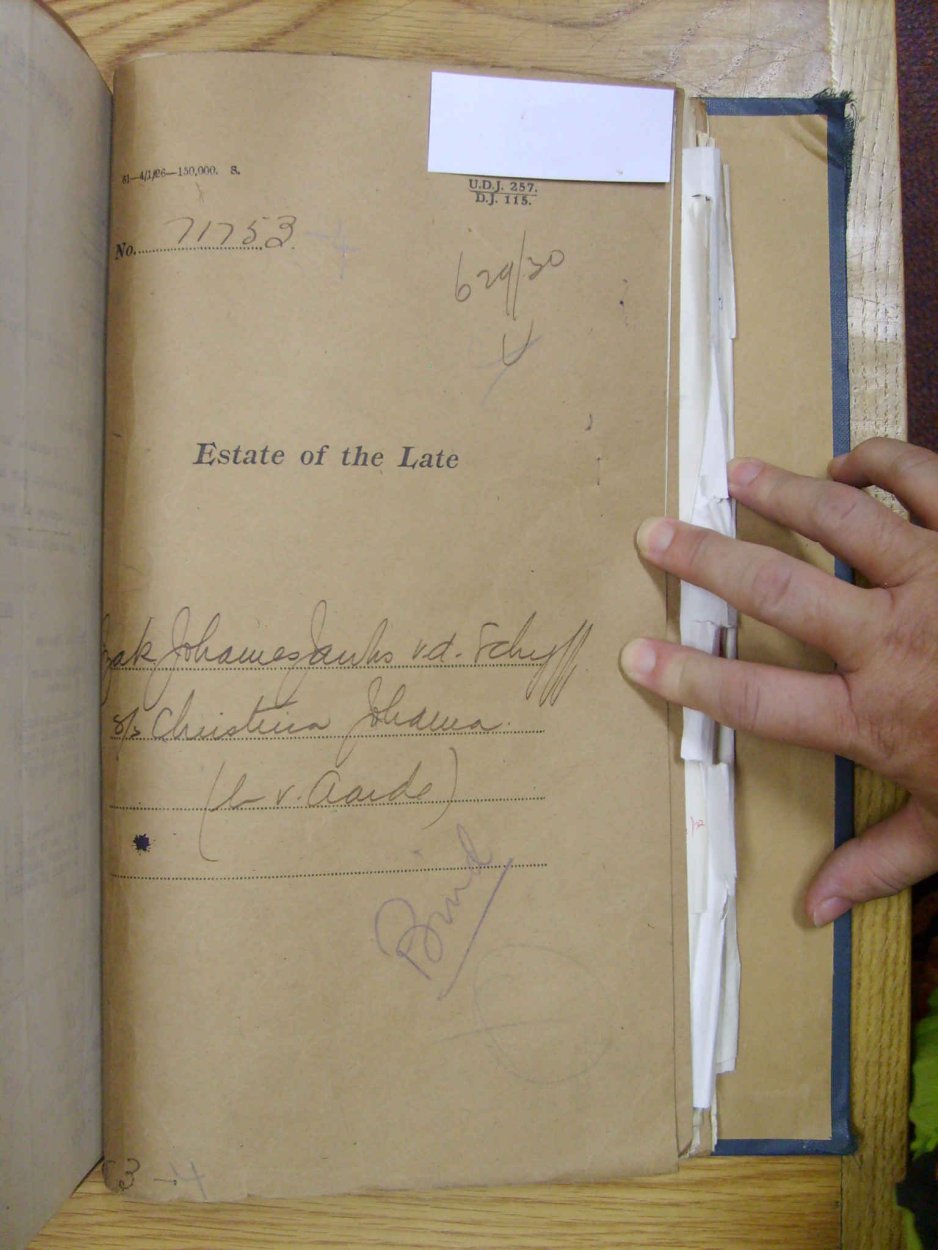 81—4/1/26—150,000. S.
U.D.J. 257.
D.J. 115.
No. 71753
629/30
Estate of the Late
Johannes v.d. Schyff
s/s Christina Johanna.
(b v. Aarde)
Bind